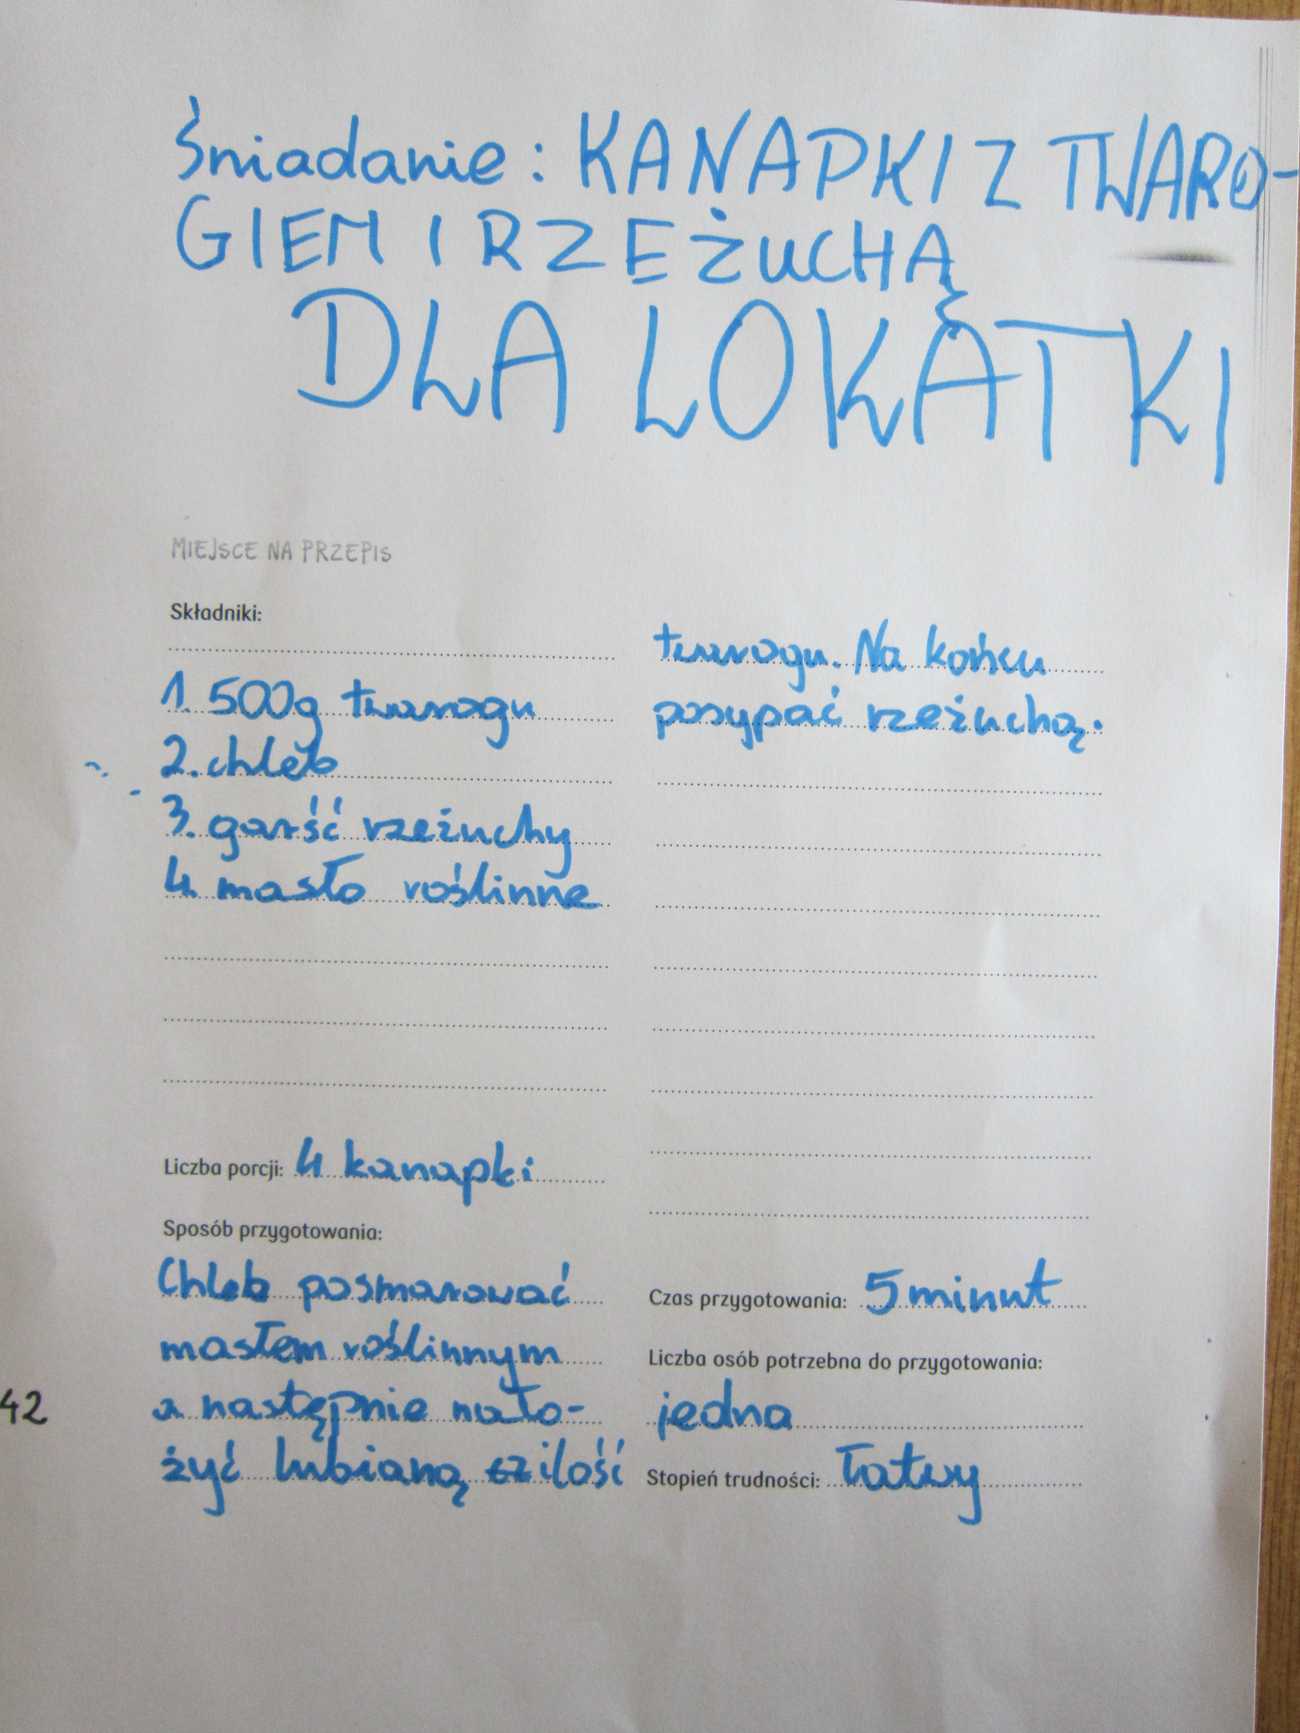 Śniadanie: KANAPKI Z TWARO-
GIEM I RZEŻUCHĄ
DLA LOKATKI
MIEJSCE NA PRZEPIS
Składniki:
1. 500g twarogu
2. chleb
3. garść rzeżuchy
4. masło roślinne
Liczba porcji: 4 kanapki
Sposób przygotowania:
Chleb posmarować
masłem roślinnym
a następnie nało-
żyć lubianą ilość
twarogu. Na końcu
posypać rzeżuchą.
Czas przygotowania: 5 minut
Liczba osób potrzebna do przygotowania:
jedna
Stopień trudności: łatwy
42